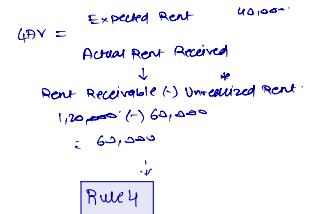 Expected Rent 40,000
GAV =
Actual Rent Received
↓
Rent Receivable (-) Unrealized Rent *
1,20,000 (-) 60,000
= 60,000
↓
Rule 4